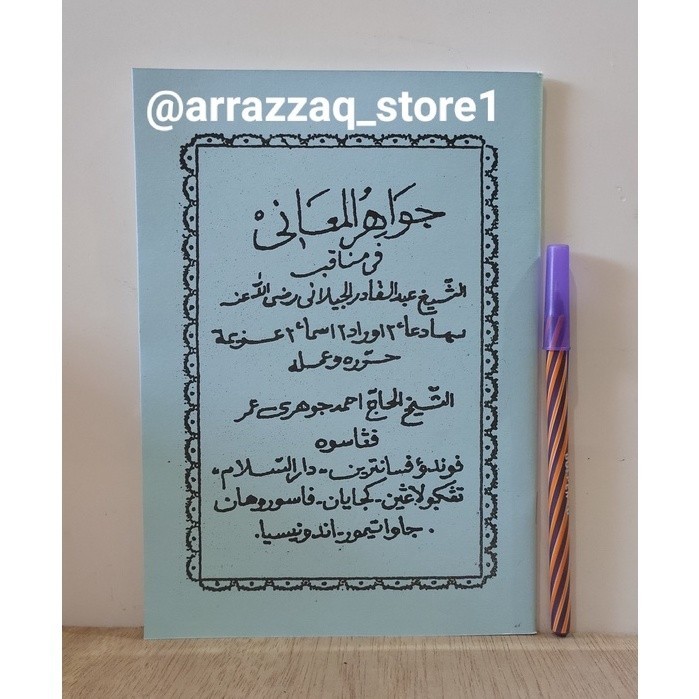 @arrazzaq_store1
جَوَاهِرُ المَعَانِى
فى مناقب
الشّيخ عبد القادر الجيلانى رضى اللّٰه عنه
بهادعاء٢ اوراد٢ اسماء٢ عزيمة
حرّره وعمله
الشّيخ الحاجّ احمد جوهرى عمر
ڤڠاسوه
ڤوندوء ڤسانترين ،، دار السّلام ،،
تڠكولاڠين - كجايان - ڤاسوروهان
. جاوا تيمور - اندونيسيا .